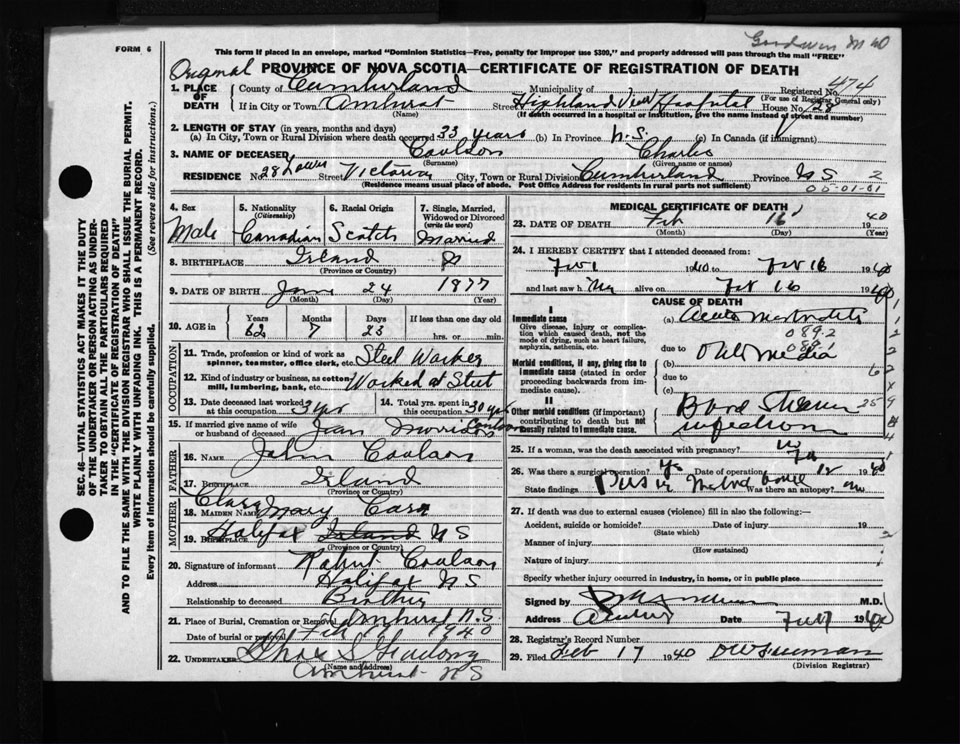 Goodwin M 40
FORM 6
This form if placed in an envelope, marked "Dominion Statistics—Free, penalty for improper use $300," and properly addressed will pass through the mail "FREE"
Original
PROVINCE OF NOVA SCOTIA—CERTIFICATE OF REGISTRATION OF DEATH
474
1. PLACE OF DEATH
County of Cumberland Municipality of Registered No.
(For use of Registrar General only)
If in City or Town Amherst Street Highland View Hospital House No. 128
(Name) (If death occurred in a hospital or institution, give the name instead of street and number)
2. LENGTH OF STAY (in years, months and days)
(a) In City, Town or Rural Division where death occurred 33 years (b) In Province N.S. (c) In Canada (if immigrant)
3. NAME OF DECEASED Coulson Charles
(Surname) (Given name or names)
RESIDENCE No. 28 Lower Street Victoria City, Town or Rural Division Cumberland Province NS 2
(Residence means usual place of abode. Post Office Address for residents in rural parts not sufficient)
05-01-01
4. Sex
Male
5. Nationality (Citizenship)
Canadian
6. Racial Origin
Scotch
7. Single, Married, Widowed or Divorced (write the word)
Married
8. BIRTHPLACE Irland
(Province or Country)
9. DATE OF BIRTH Jan 24 1877
(Month) (Day) (Year)
10. AGE in
Years Months Days If less than one day old
62 7 23 hrs. or min.
OCCUPATION
11. Trade, profession or kind of work as spinner, teamster, office clerk, etc. Steel Worker
12. Kind of industry or business, as cotton mill, lumbering, bank, etc. Worked at Steel
13. Date deceased last worked at this occupation 3 yrs 14. Total yrs. spent in this occupation 30 yrs
15. If married give name of wife or husband of deceased Jean Morrison Coulson
FATHER
16. NAME John Coulson
17. BIRTHPLACE Irland
(Province or Country)
MOTHER
18. MAIDEN NAME Clara Mary Carr
19. BIRTHPLACE Halifax Irland NS
(Province or Country)
20. Signature of informant Robert Coulson
Address Halifax NS
Relationship to deceased Brother
21. Place of Burial, Cremation or Removal Amherst N.S.
Date of burial or removal Feb 19 1940
22. UNDERTAKER Chas S
(Name and address)
Amherst NS
MEDICAL CERTIFICATE OF DEATH
23. DATE OF DEATH Feb 16 1940
(Month) (Day) (Year)
24. I HEREBY CERTIFY that I attended deceased from:
Feb 1 1940 to Feb 16 1940
and last saw h alive on Feb 16 1940
CAUSE OF DEATH
I
Immediate cause
Give disease, injury or complication which caused death, not the mode of dying, such as heart failure, asphyxia, asthenia, etc.
(a) Acute Mastoiditis
089.2
089.1
due to
Morbid conditions, if any, giving rise to immediate cause (stated in order proceeding backwards from immediate cause).
(b) Otitis Media
due to
(c)
II
Other morbid conditions (if important) contributing to death but not causally related to immediate cause.
infection
25. If a woman, was the death associated with pregnancy?
26. Was there a surgical operation? Yes Date of operation Feb 12 1940
State findings Pus in Mastoid Was there an autopsy? no
27. If death was due to external causes (violence) fill in also the following:—
Accident, suicide or homicide? Date of injury 19
(State which)
Manner of injury
(How sustained)
Nature of injury
Specify whether injury occurred in industry, in home, or in public place
Signed by M.D.
Address Amherst Date Feb 17 1940
28. Registrar's Record Number
29. Filed Feb 17 1940
(Division Registrar)
SEC. 46—VITAL STATISTICS ACT MAKES IT THE DUTY
OF THE UNDERTAKER OR PERSON ACTING AS UNDER-
TAKER TO OBTAIN ALL THE PARTICULARS REQUIRED
IN THE "CERTIFICATE OF REGISTRATION OF DEATH"
AND TO FILE THE SAME WITH THE DIVISION REGISTRAR WHO SHALL ISSUE THE BURIAL PERMIT.
WRITE PLAINLY WITH UNFADING INK. THIS IS A PERMANENT RECORD.
Every item of information should be carefully supplied. (See reverse side for instructions.)